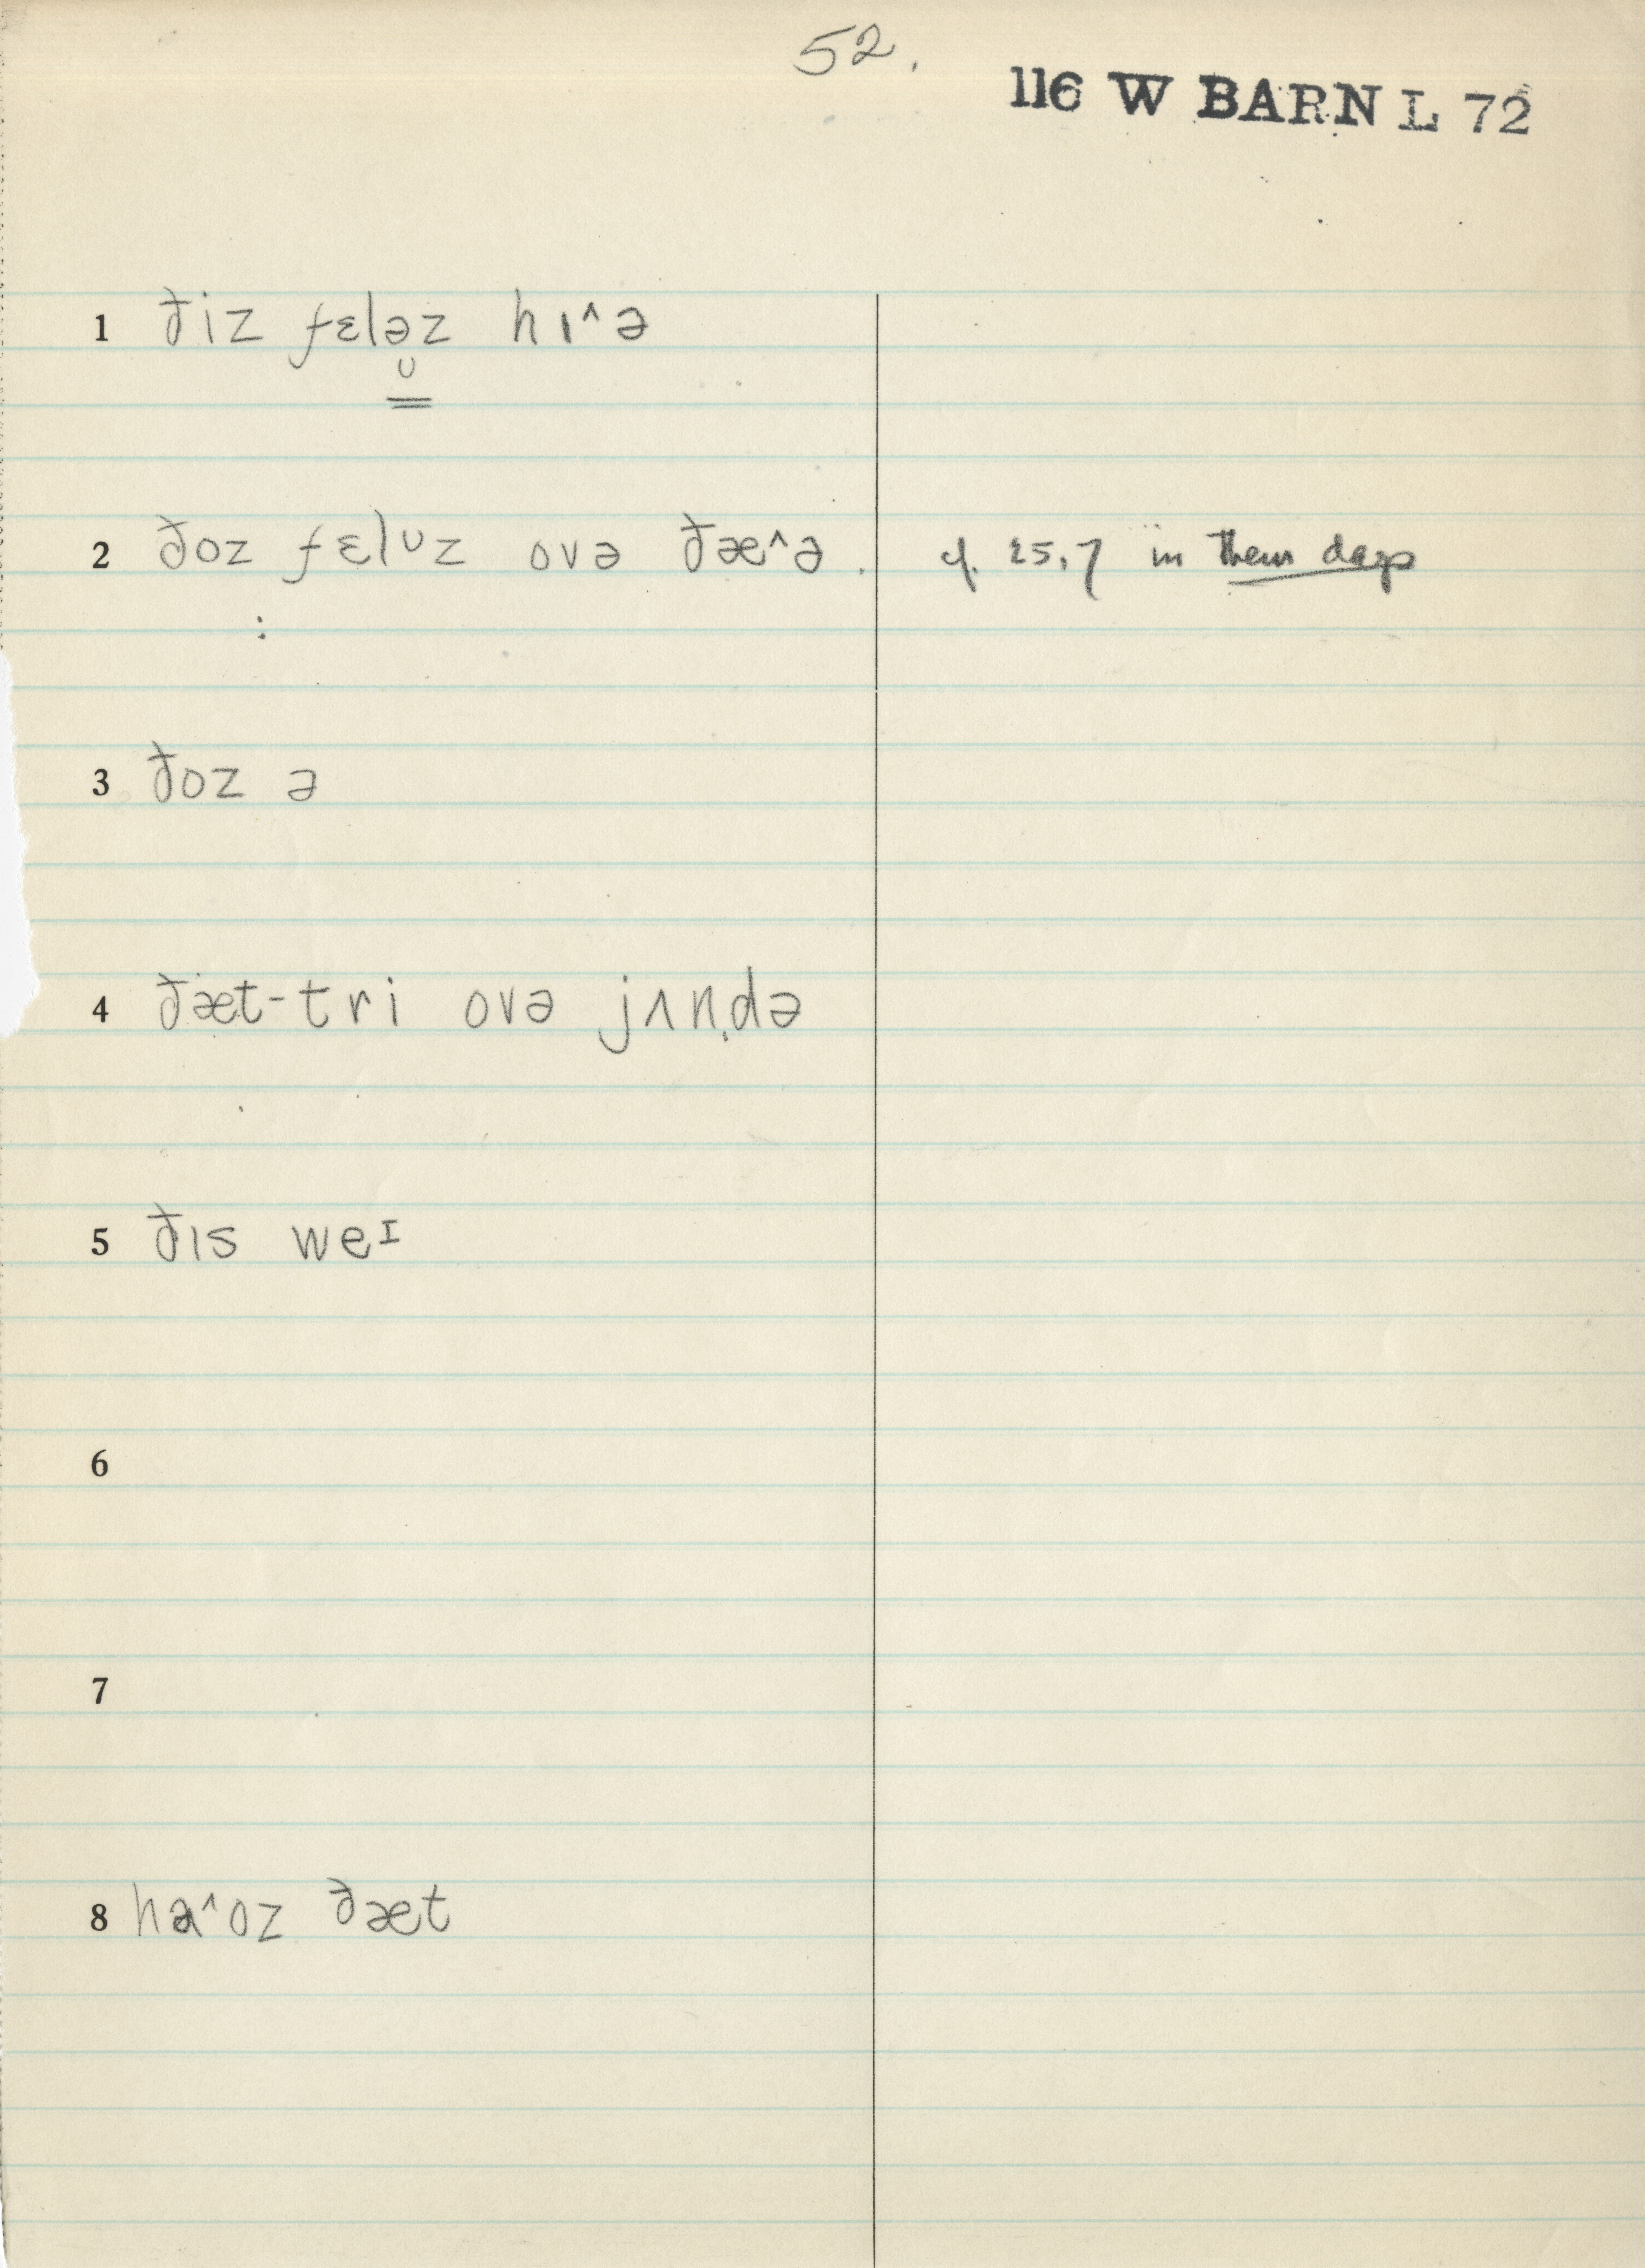 52.
116 W BARN L 72
1 ðiz fɛləz hɪ^ə
ᴗ
2 ðoz fɛlᴜz ovə ðæ^ə . cf. 25.7 in them days
:
3 ðoz ə
4 ðæt-tri ovə jʌn̩də
5 ðɪs weᶦ
6
7
8 ha^oz ðæt